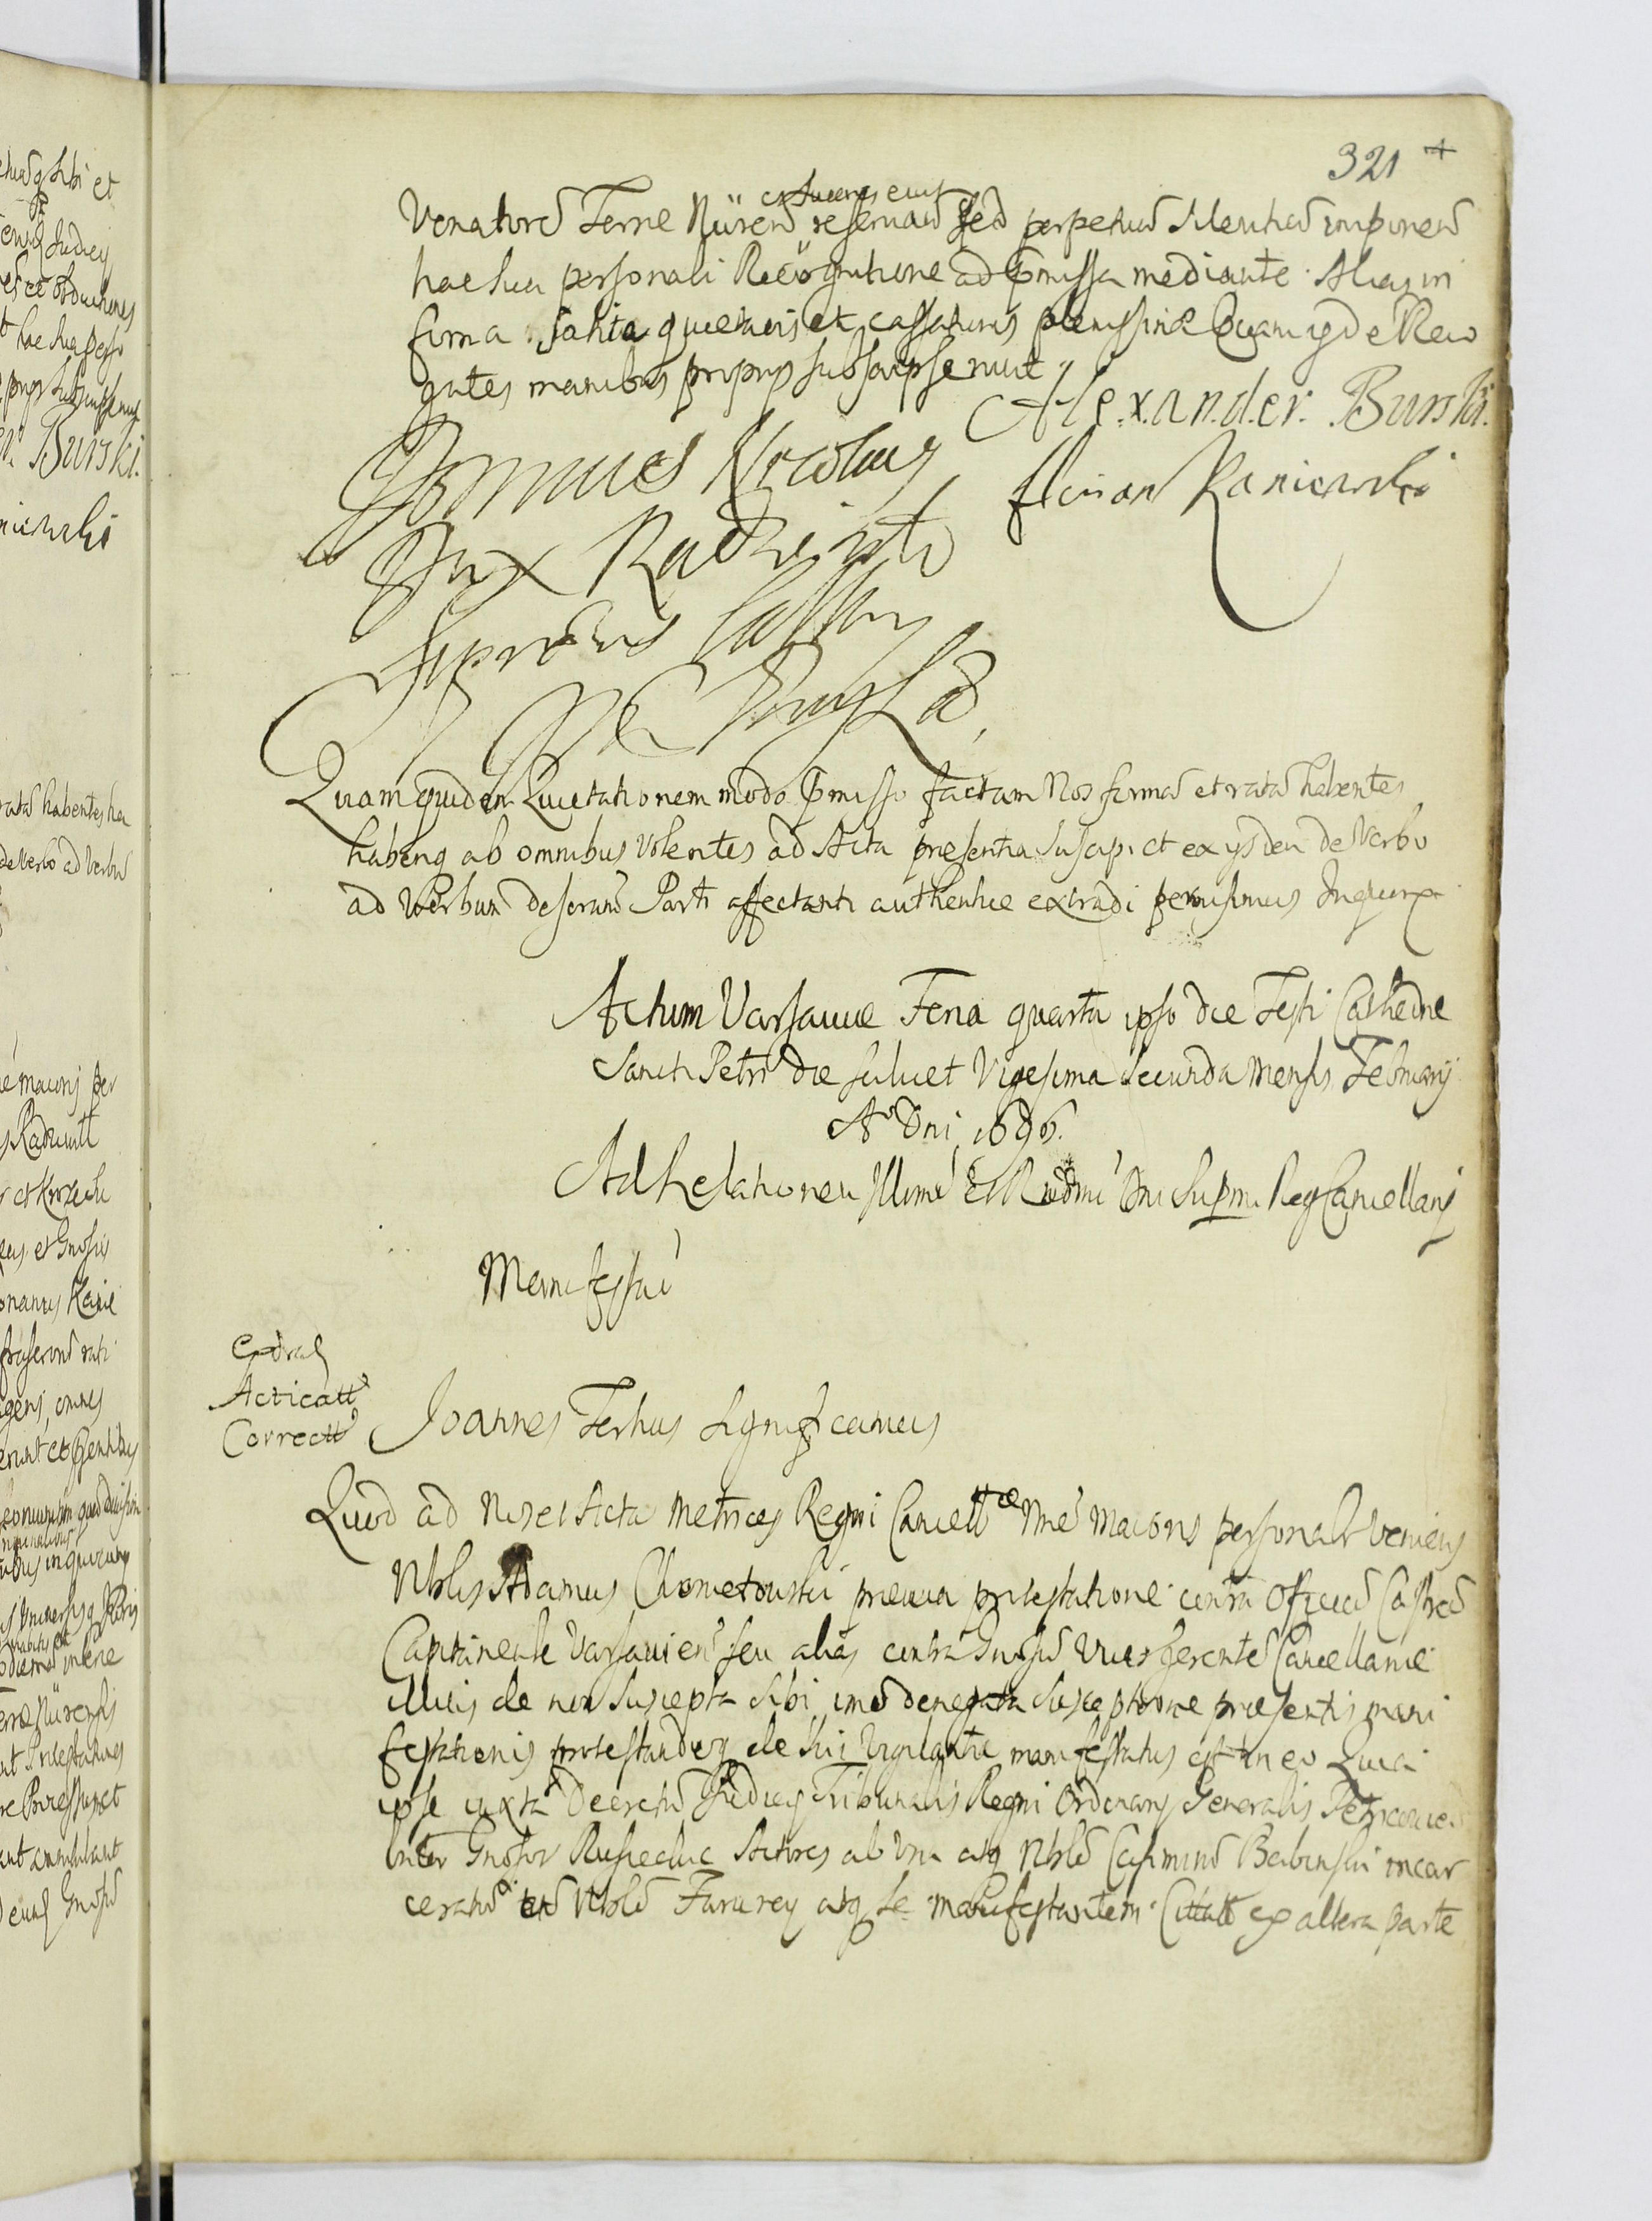 321
et Succeres eius
Venatorẽ Terre Nüren reservand Sed perpetuũ Silentiũ imponend
hac sua personali Recognitione ad pmissa mediante. Alias in
forma solita quietacois et cassationis plenissime Quam ijdẽ Reco
gntes manibus proprijs subscripserunt
Alexander Burski.
Dominicus Nicolaus
florian Raniewski
Dux Radziwił
Quam quidem Quietationem modo pmisso factam Nos firmã et ratã habentes
haberiq ab omnibus volentes ad Acta presentia suscipi et ex ijsdem de Verbo
ad Verbum descriptã Parti affectanti authentice extradi permisimus In quor
Actum Varsavie Feria quarta ipso die Festi Cathedre
Sancti Petri die scilicet Vigesima secunda Mensis Februarij
Aº Dni 1696.
Ad Relationem Illmi et Rndmi Dni Supmi Reg Cancellarij
Manifestaõ
Extrad
Acticatt
Correctt
Joannes Tertius Significamus
Quod ad Nos et Acta Metrices Regni Cancell Nre Maioris personalr veniens
Nblis Adamus Chometowski previa protestatione contra Officiũ Castrẽ
Capitaneale Varsavien seu alias contra Gnosũ Vices gerentẽ Cancellarie
illius de non suscepta sibi imo denegata susceptione presentis mani
festationis protestandoq de sui Vigilantia manifestatus est in eo Quia
ipse iuxta Decretũ Judicij Tribunalis Regni Ordinarij Generalis Petricovien
Inter Gnosos Actores ab Vna atq Nblẽ Casimirũ Babinski incar
ceratũ Nblẽ atq se manifestantem Citatt ex altera parte